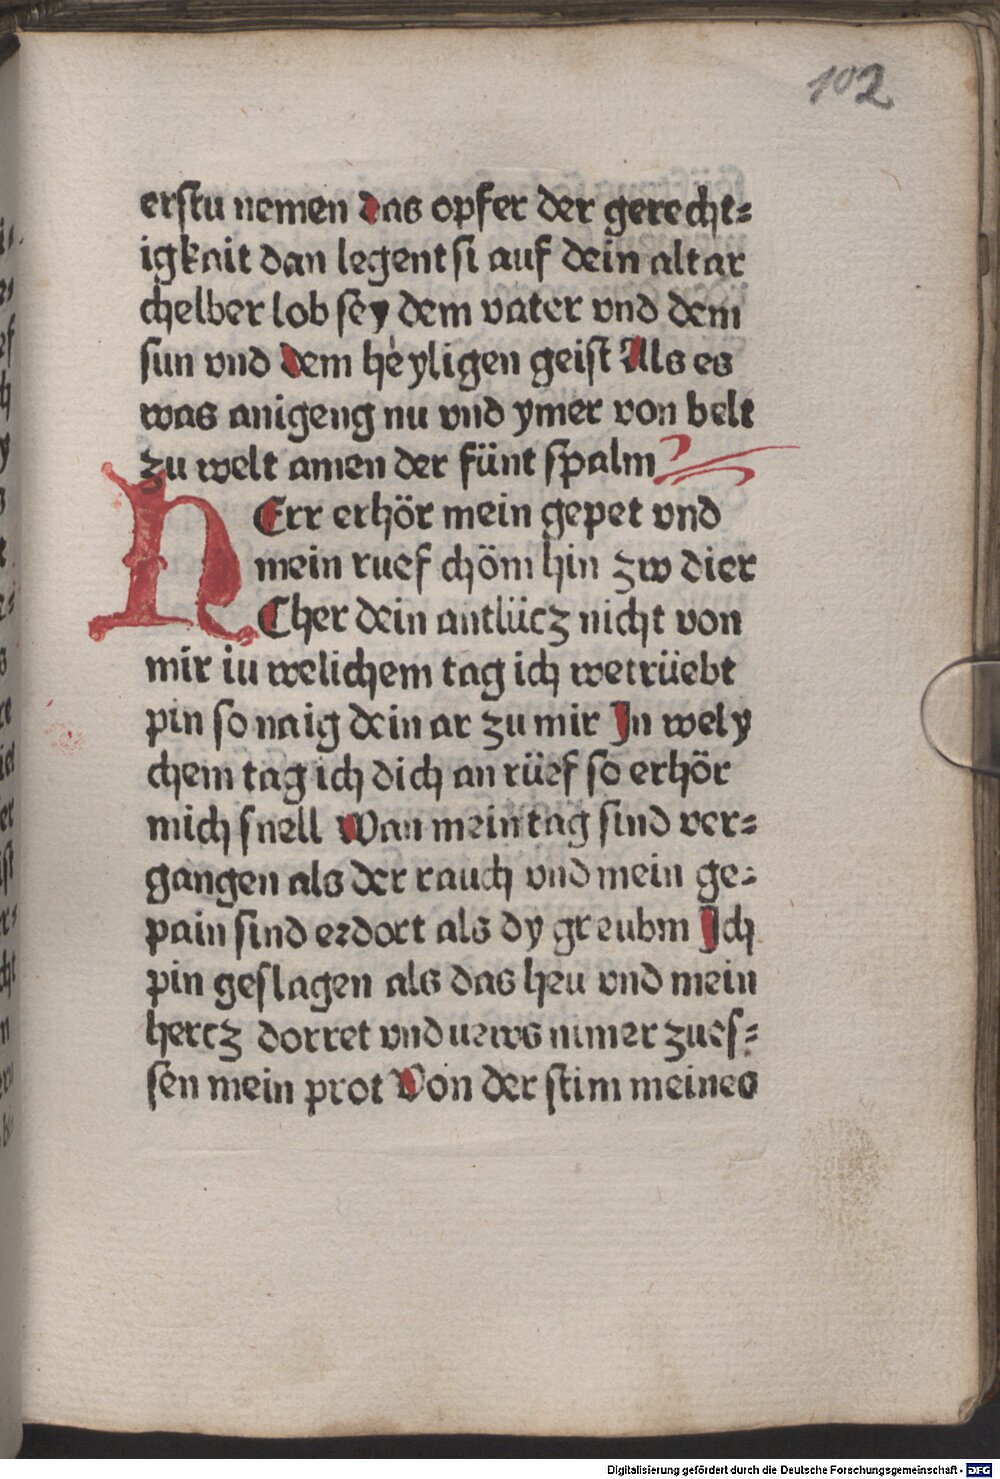 102
erstu nemen das opfer der gerecht=
igkait dan legent si auf dein altar
chelber lob sey dem vater vnd dem
sun vnd dem heyligen geist Als es
was anigeng nu vnd ymer von belt
zu welt amen der fünt spalm
HErr erhör mein gepet vnd
mein ruef chöm hin zw dier
Cher dein antlücz nicht von
mir iu welichem tag ich wetrüebt
pin so naig dein ar zu mir In wely
chem tag ich dich an rüef so erhör
mich snell Wan mein tag sind ver=
gangen als der rauch vnd mein ge=
pain sind erdort als dy greubm Ich
pin geslagen als das heu vnd mein
hercz dorret vnd uews nimer zues=
sen mein prot Von der stim meines
Digitalisierung gefördert durch die Deutsche Forschungsgemeinschaft - DFG